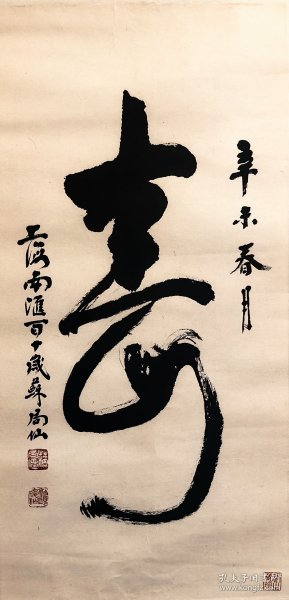 辛未春月
壽
上海南滙百十歲蘇局仙
孔夫子旧书网